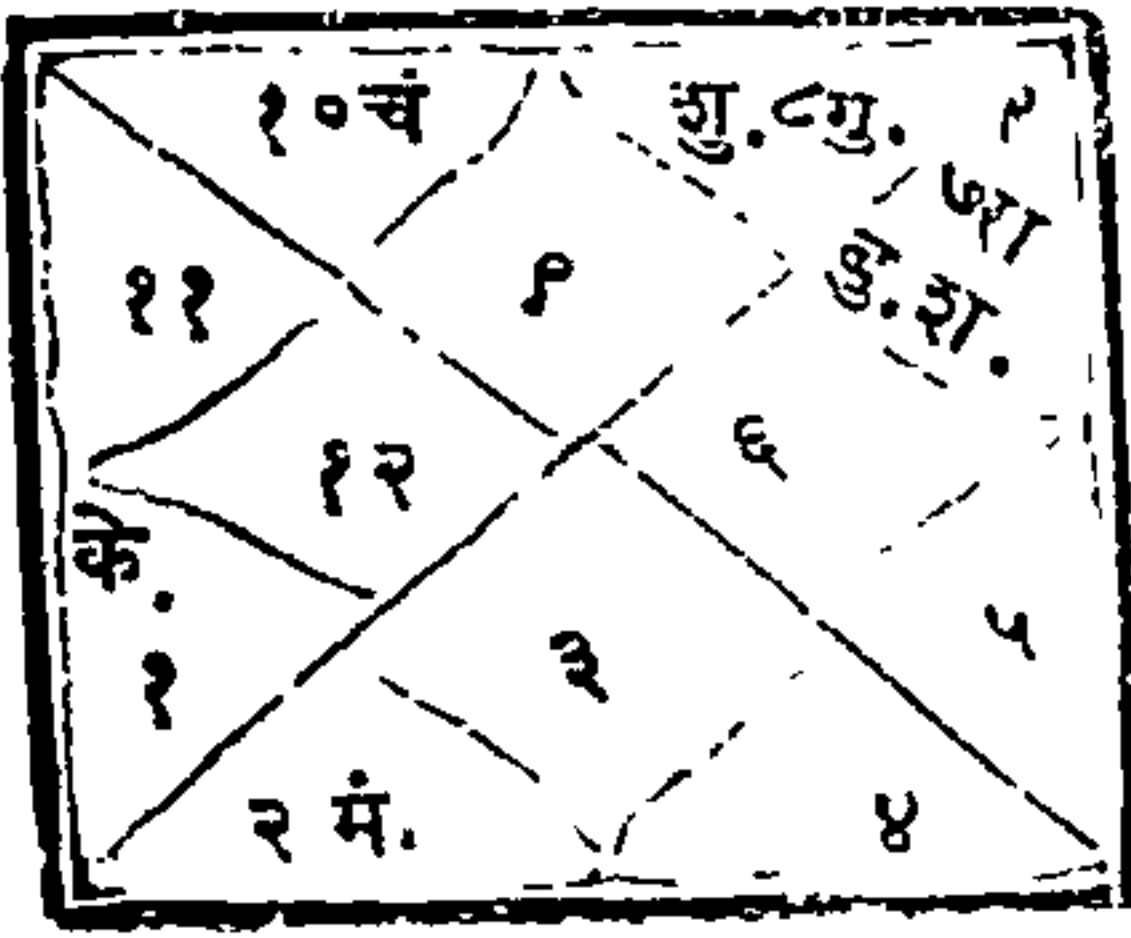 १०चं
शु.८गु.
र
७रा
बु.श.
११
९
१२
६
के.
१
३
५
२ मं.
४